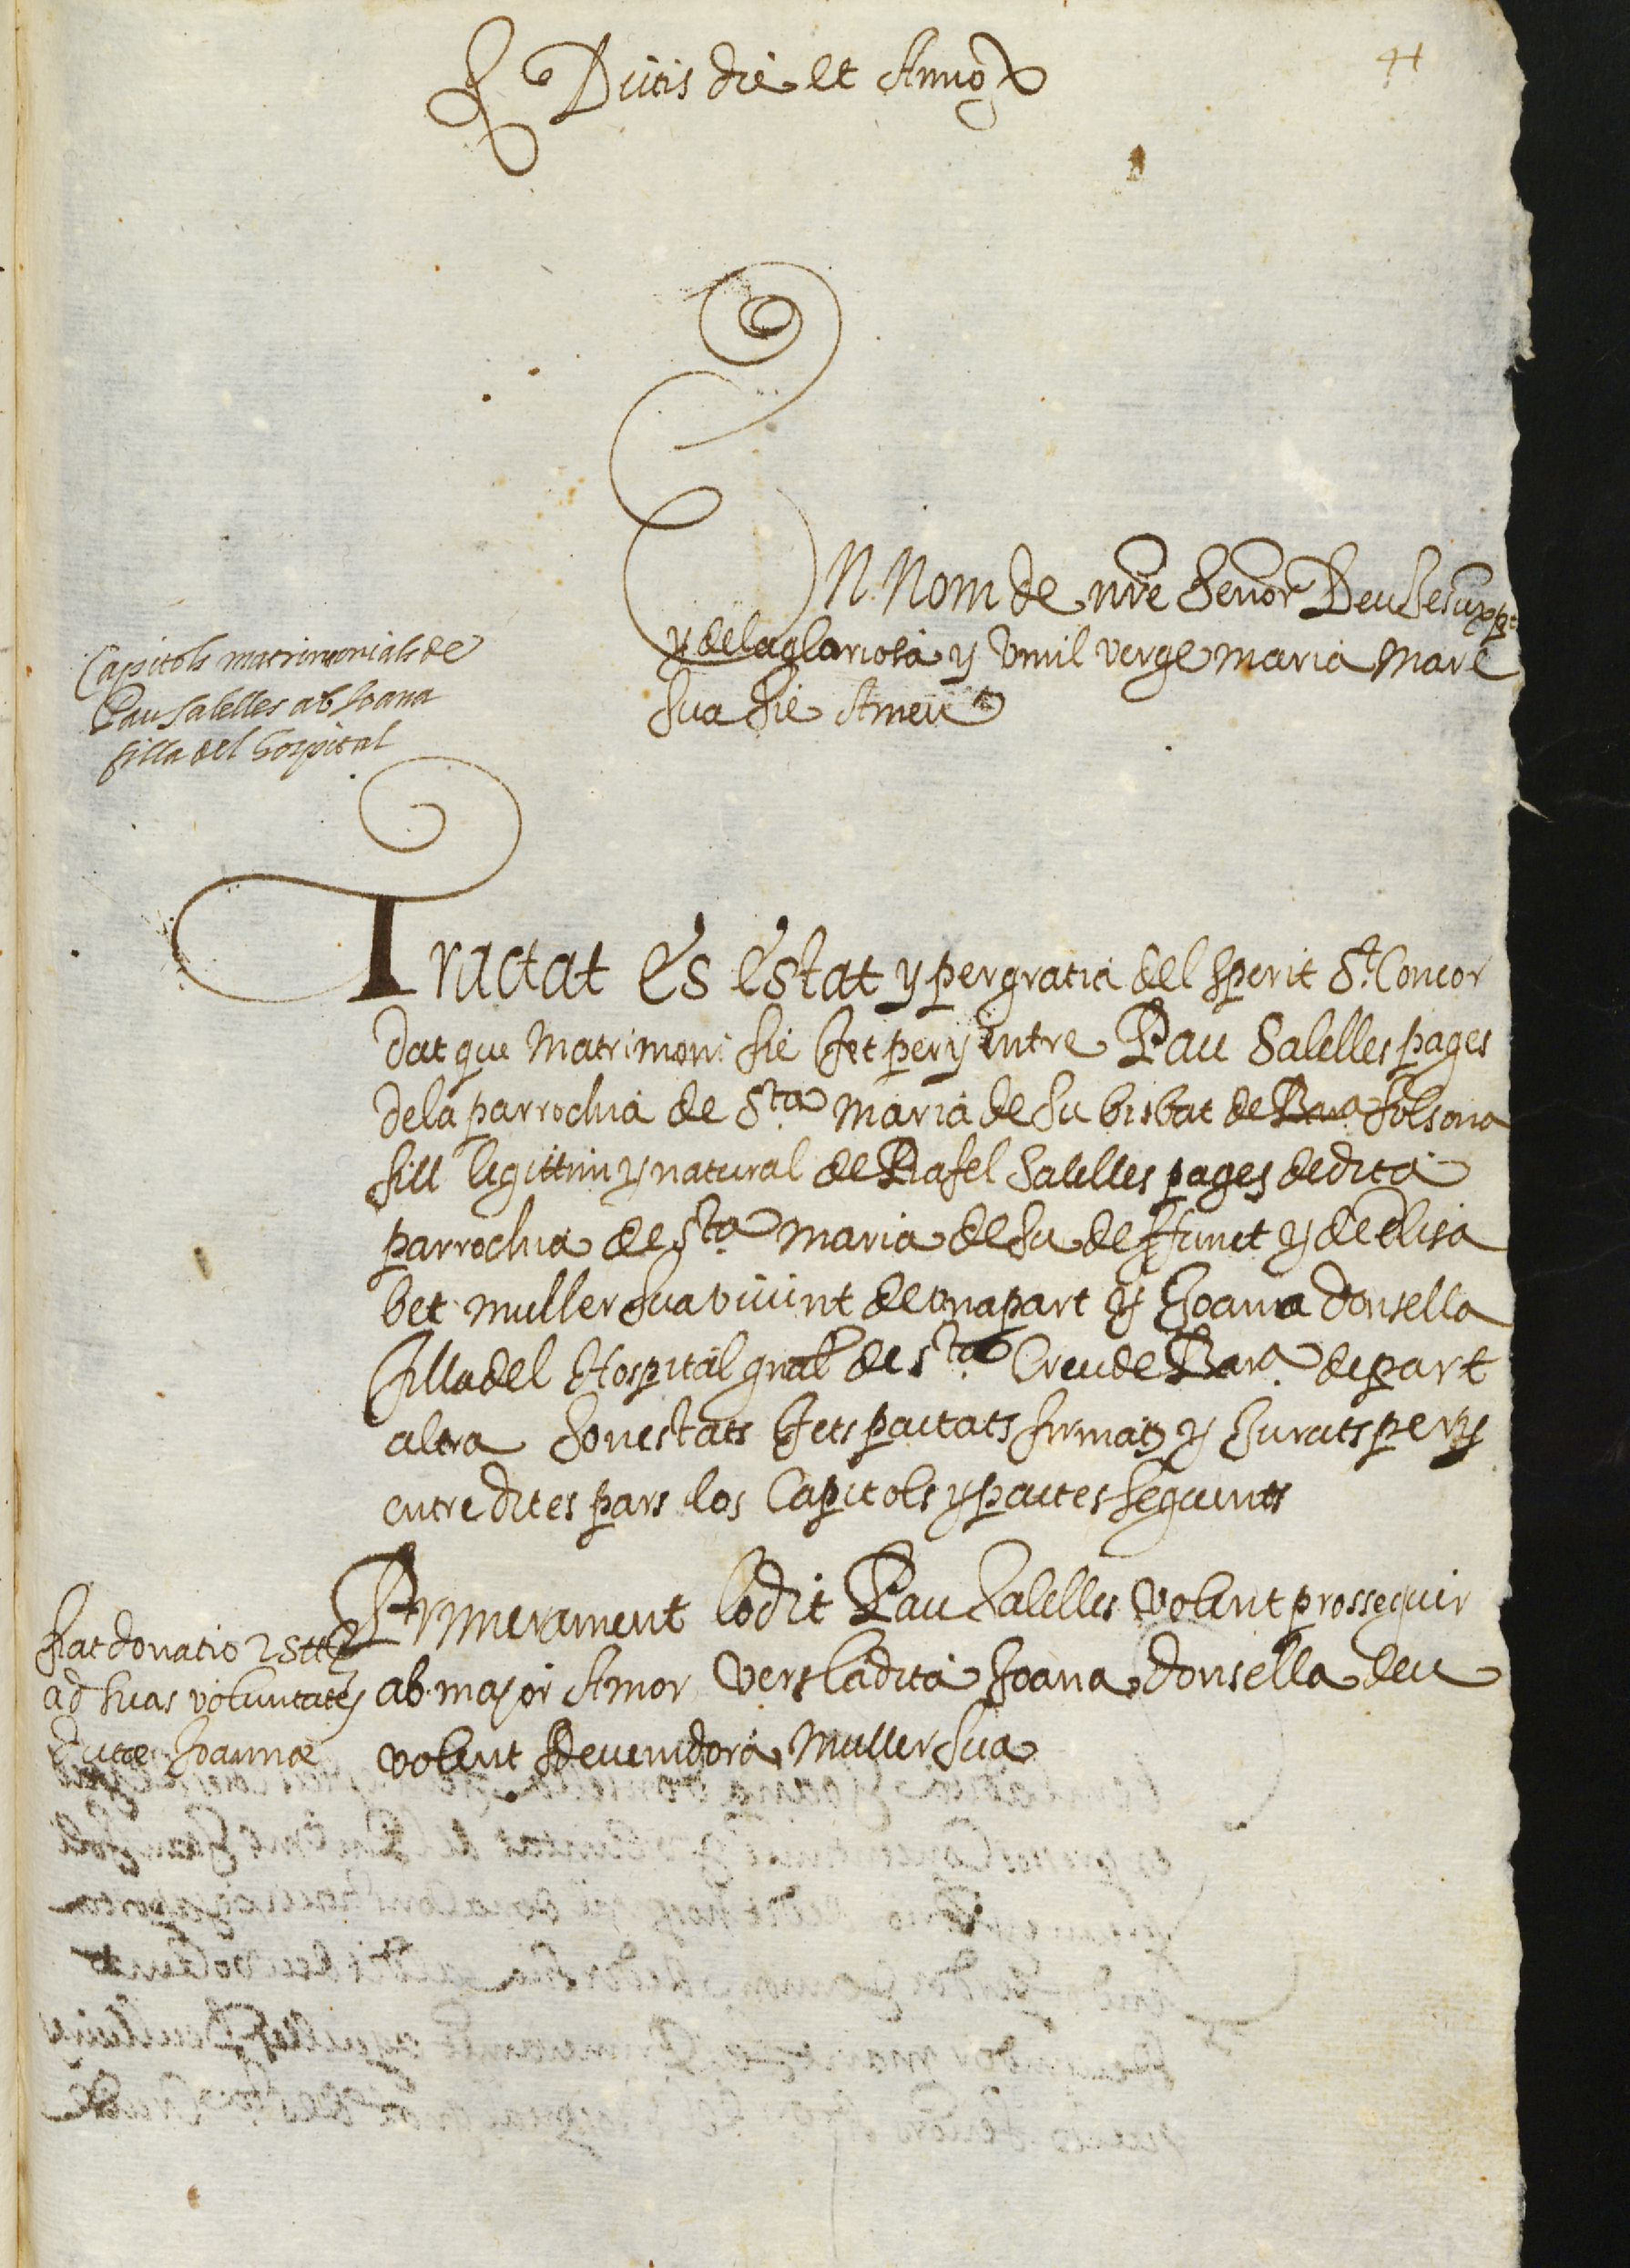 Dictis die et Anno
41
En Nom de nre Senor Deu Jesuxpt
y de la gloriosa y Umil verge maria Mare
Sua sie Amen
Capitols matrimonials de
Pau Salelles ab Joana
filla del hospital
Tractat Es Estat y per gratia del sperit St. Concor
dat que Matrimoni sie fet per y entre Pau Salelles pages
dela parrochia de Sta. Maria de Su bisbat de Bara. Solsona
fill legittim y natural de Rafel Salelles pages de dita
parrochia de Sta. Maria de Su deffunct y de Elisa
bet muller sua vivint de una part y Joana donsella
filla del Hospital gnal de Sta. Creu de Bara. de part
altra son estats fets pactats firmats y Jurats per y
entre dites pars los Capitols y pactes seguents
Primerament lo dit Pau Salelles volent prosseguir
ab major Amor vers la dita Joana donsella deu
volent sdevenidora Muller sua
fiat donatio 25 tt
ad suas voluntates
dictae Joannae